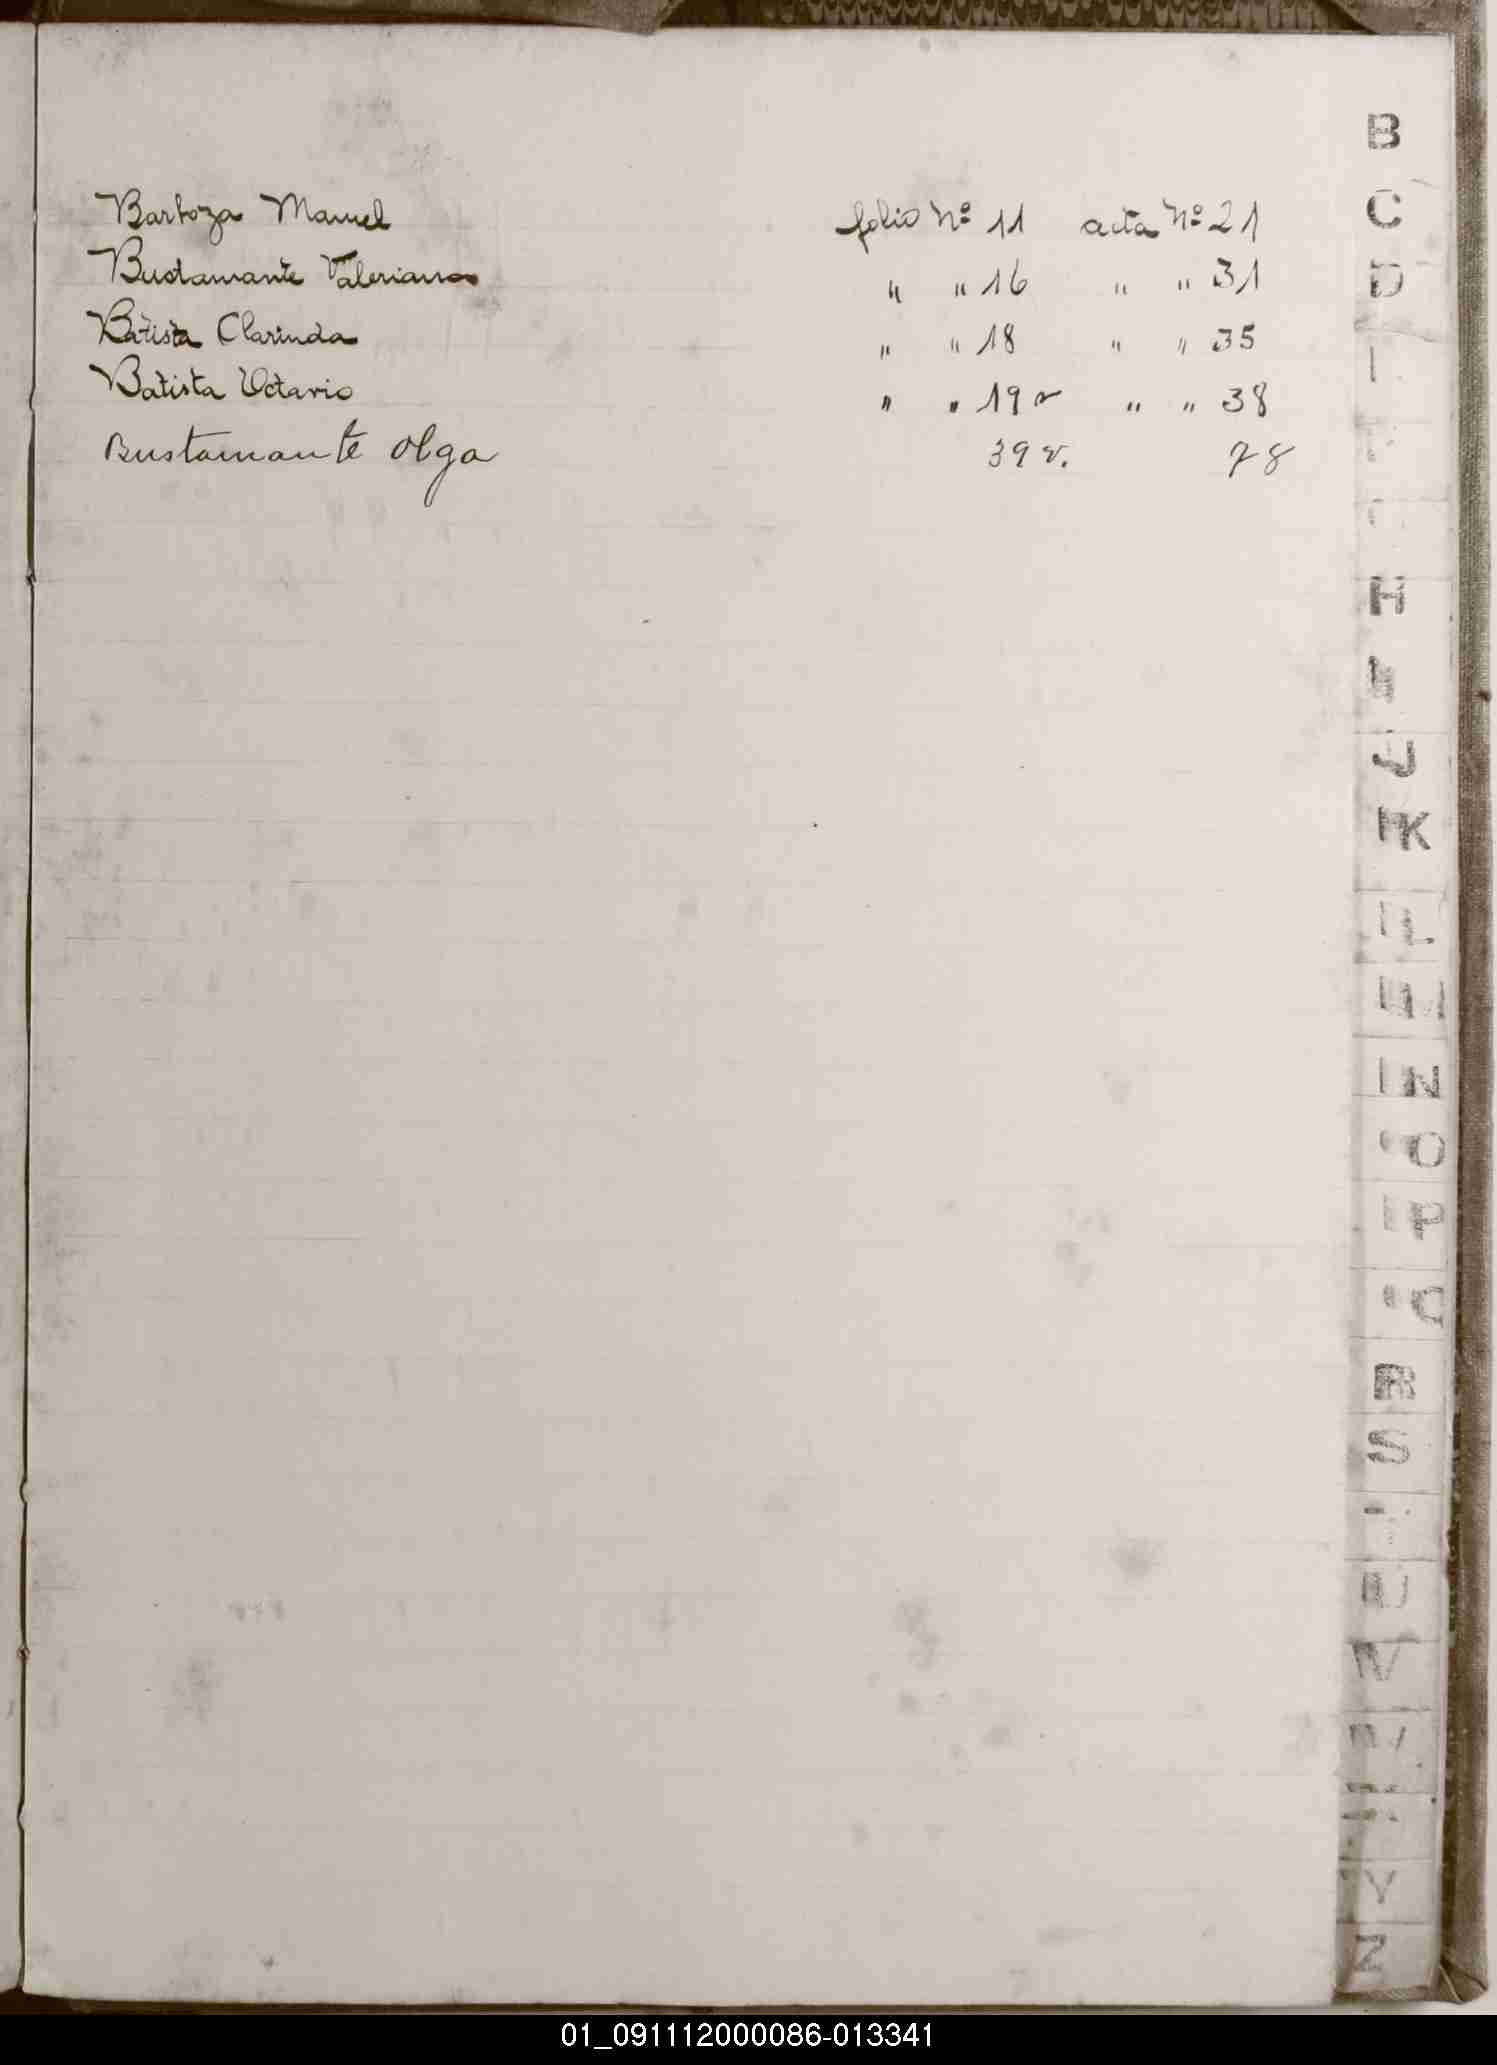 B
Barboza Manuel folio Nº 11 acta Nº 21
C
Bustamante Valeriana " " 16 " " 31
D
Batista Clarinda " " 18 " " 35
Batista Octavio " " 19 v " " 38
Bustamante Olga 39 v. 78
H
J
K
N
O
P
R
S
U
V
Y
Z
01_091112000086-013341